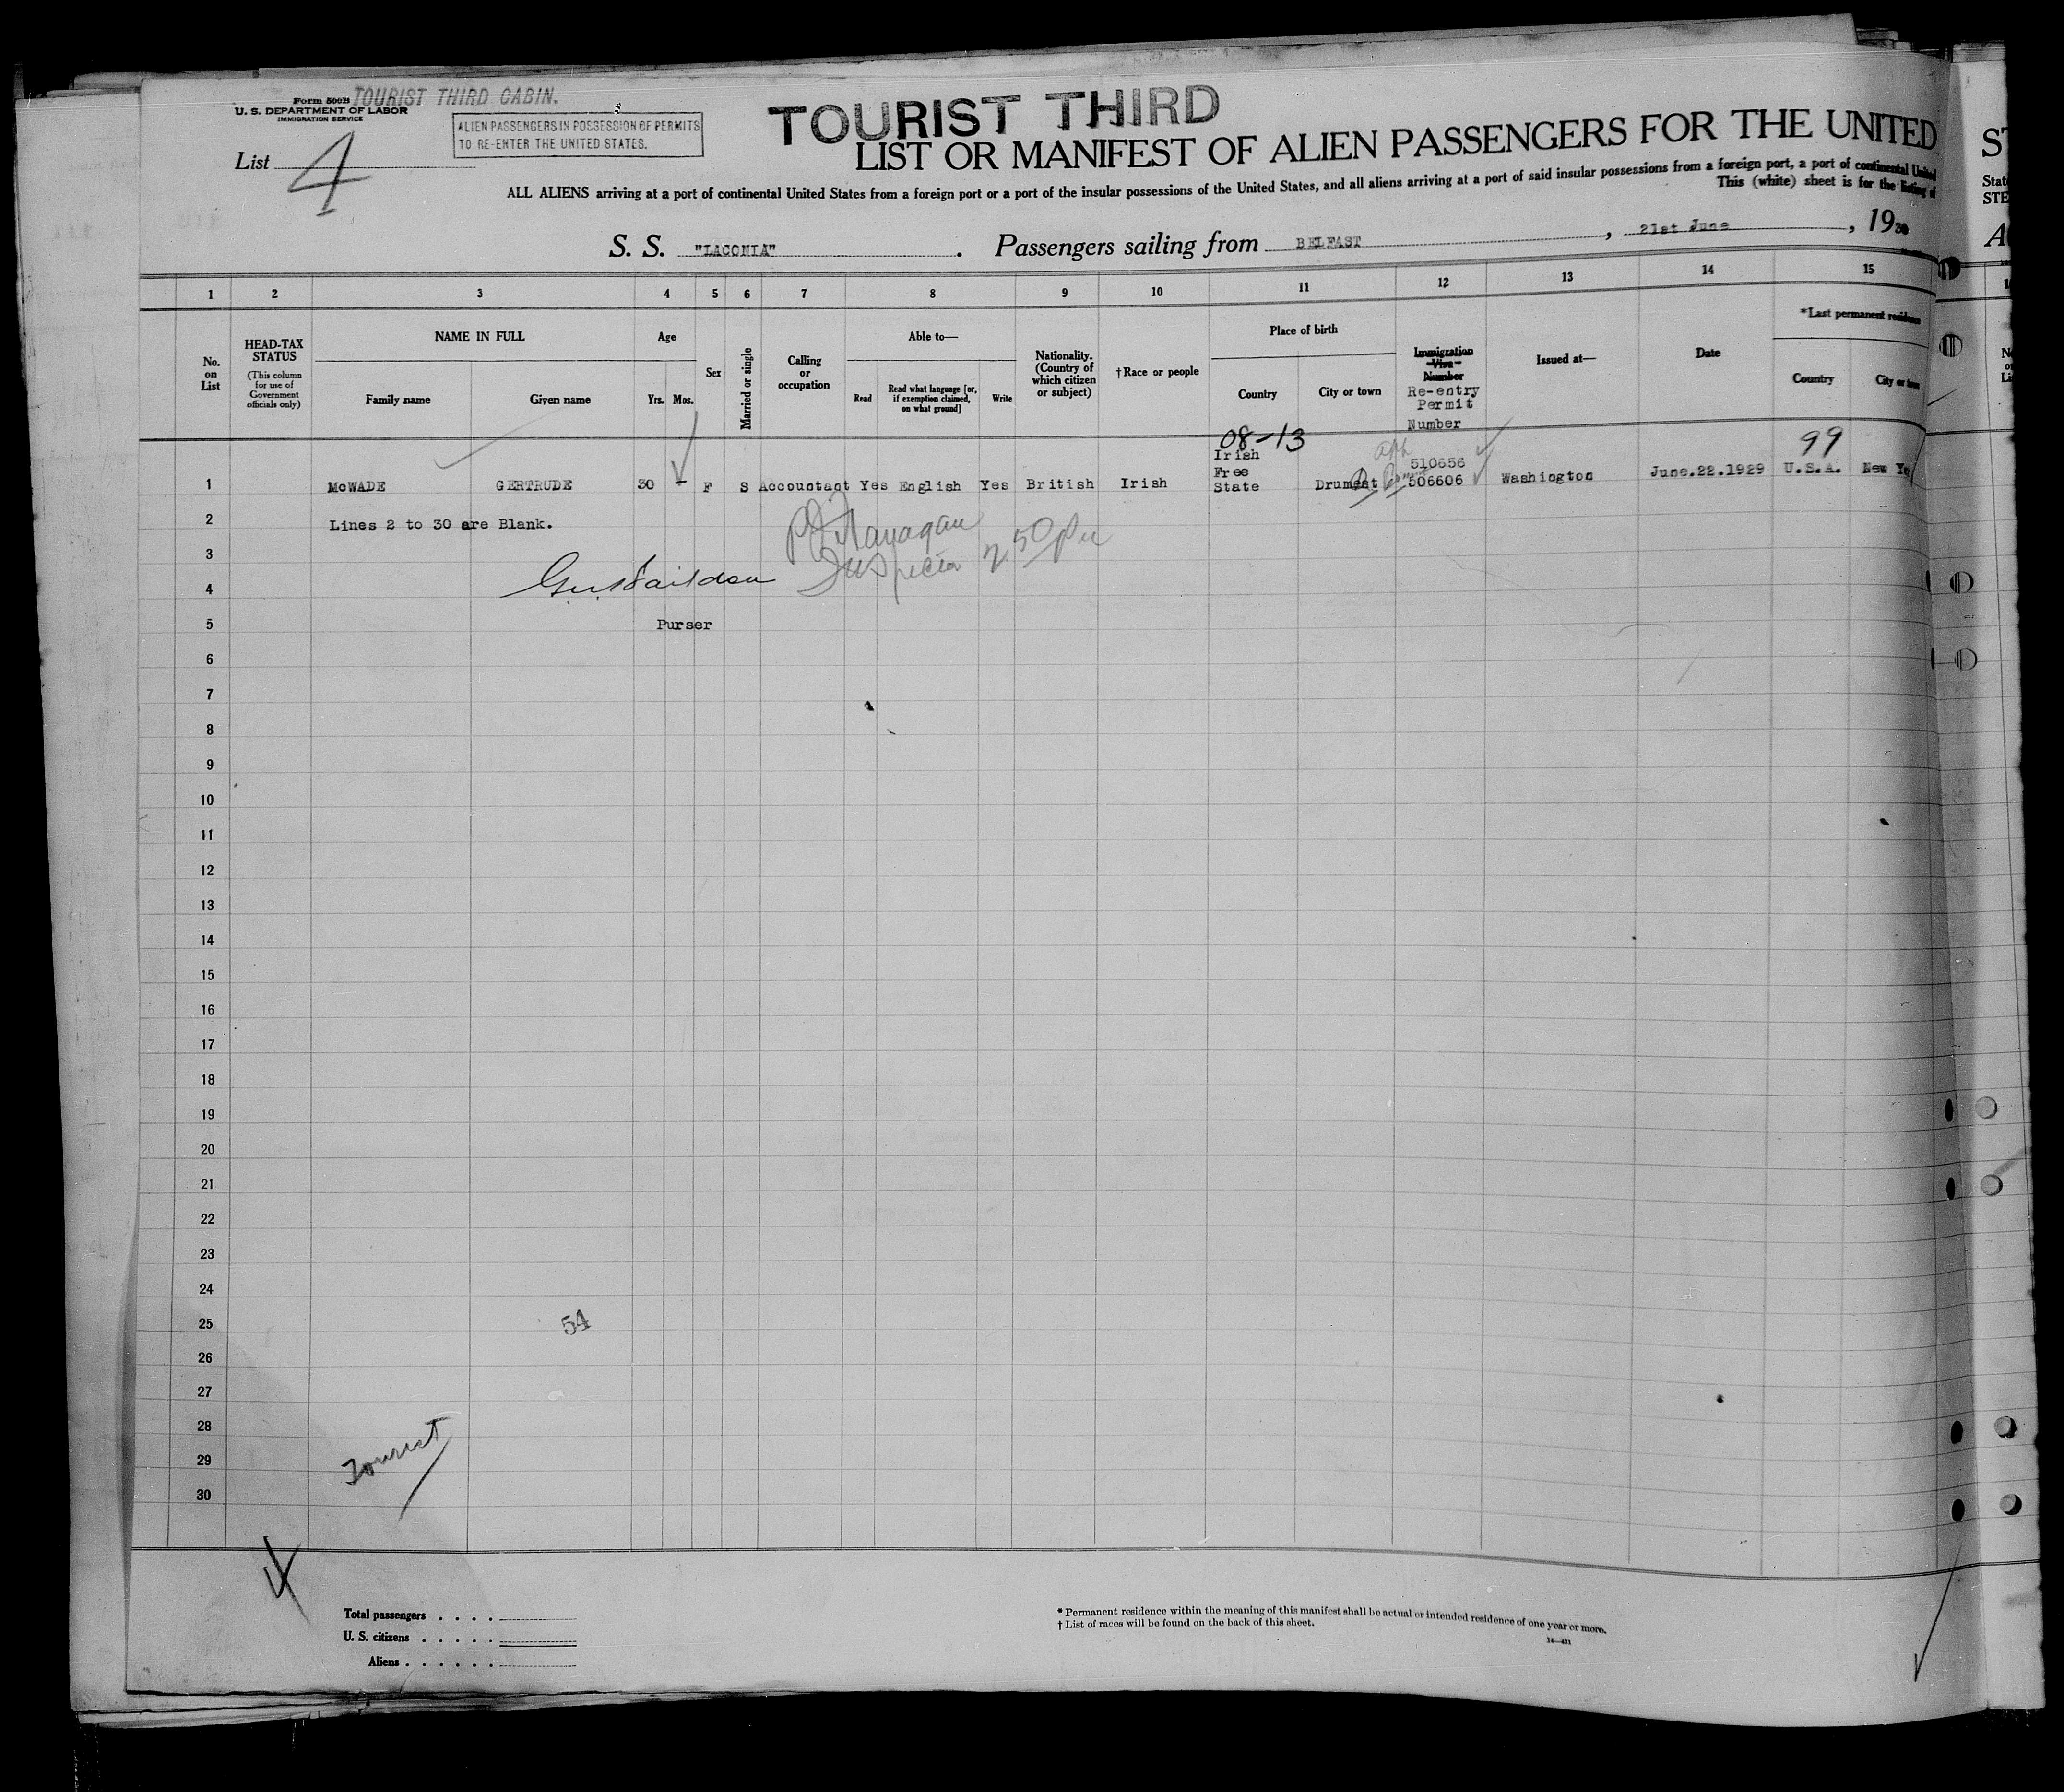 Form 500B TOURIST THIRD CABIN.
U. S. DEPARTMENT OF LABOR
IMMIGRATION SERVICE
ALIEN PASSENGERS IN POSSESSION OF PERMITS
TO RE-ENTER THE UNITED STATES.
List 4
TOURIST THIRD
LIST OR MANIFEST OF ALIEN PASSENGERS FOR THE UNITED
ALL ALIENS arriving at a port of continental United States from a foreign port or a port of the insular possessions of the United States, and all aliens arriving at a port of said insular possessions from a foreign port, a port of continental United
This (white) sheet is for the listing of
S. S. "LACONIA". Passengers sailing from BELFAST, 21st June, 1930
1 2 3 4 5 6 7 8 9 10 11 12 13 14 15
No. on List
HEAD-TAX STATUS
(This column for use of Government officials only)
NAME IN FULL
Family name
Given name
Age
Yrs. Mos.
Sex
Married or single
Calling or occupation
Able to—
Read
Read what language [or, if exemption claimed, on what ground]
Write
Nationality. (Country of which citizen or subject)
†Race or people
Place of birth
Country
City or town
Immigration Visa Number
Re-entry Permit Number
Issued at—
Date
*Last permanent residence
Country
City or town
08-13
99
1 McWADE GERTRUDE 30 - F S Accountant Yes English Yes British Irish Irish Free State Drumeat 510656 506606 Washington June.22.1929 U.S.A. New Yo
2 Lines 2 to 30 are Blank.
Flanagan
Inspector
3
4
5 Purser
6
7
8
9
10
11
12
13
14
15
16
17
18
19
20
21
22
23
24
25 54
26
27
28
29 Tourist
30
Total passengers . . . .
U. S. citizens . . . . .
Aliens . . . . . .
* Permanent residence within the meaning of this manifest shall be actual or intended residence of one year or more.
† List of races will be found on the back of this sheet.
14—421